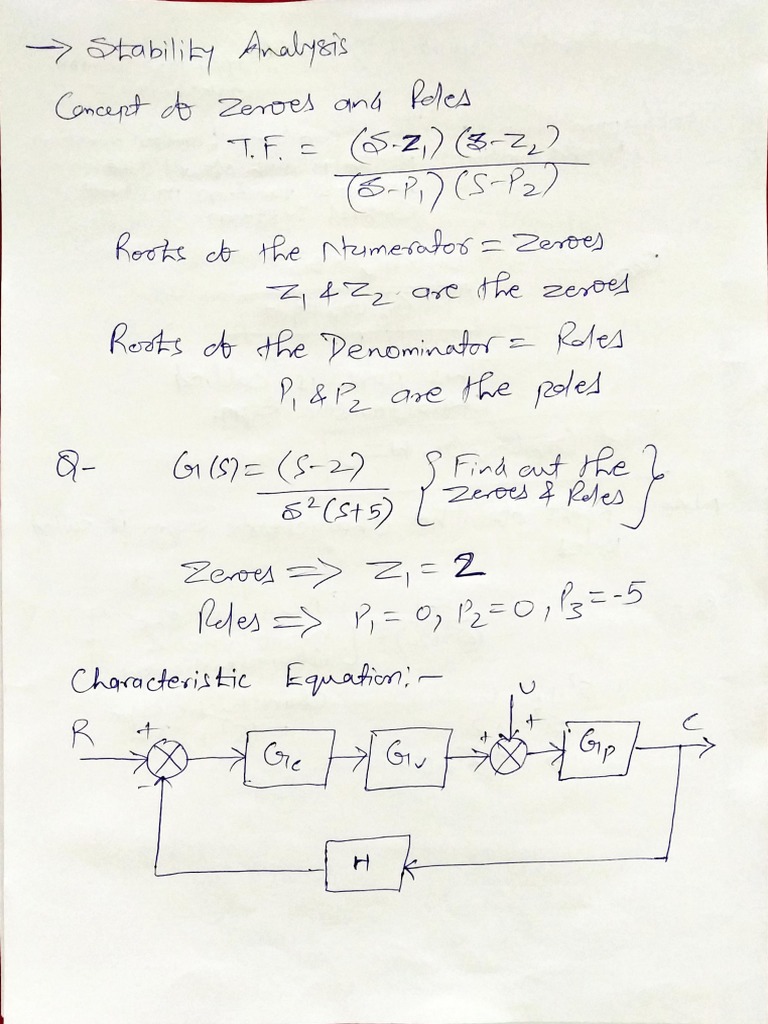 → Stability Analysis
Concept of Zeroes and Poles
T.F. = (S-Z₁) (S-Z₂)
(S-P₁) (S-P₂)
Roots of the Numerator = Zeroes
Z₁ & Z₂ are the zeroes
Roots of the Denominator = Poles
P₁ & P₂ are the poles
Q- G(S) = (S-2) { Find out the
S²(S+5) Zeroes & Poles }
Zeroes ⇒ Z₁ = 2
Poles ⇒ P₁ = 0, P₂ = 0, P₃ = -5
Characteristic Equation:-
U
R + Gc Gv + + Gp C
-
H